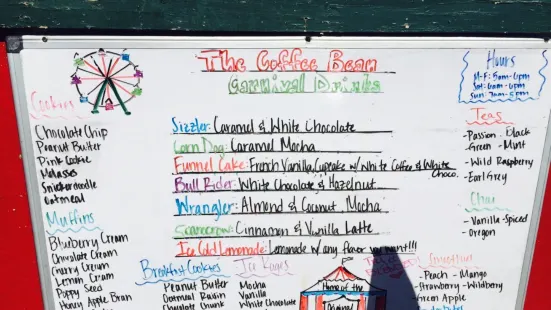 The Coffee Bean
Carnival Drinks
Hours
M-F: 5am-6pm
Sat: 6am-6pm
Sun: 7am-5pm
Cookies
Chocolate Chip
Peanut Butter
Pink Cookie
Molasses
Snickerdoodle
Oatmeal
Muffins
Blueberry Cream
Chocolate Cream
Cherry Cream
Lemon Cream
Poppy Seed
Honey Apple Bran
Sizzler: Caramel & White Chocolate
Corn Dog: Caramel Mocha
Funnel Cake: French Vanilla, Cupcake w/ White Coffee & White Choco.
Bull Rider: White Chocolate & Hazelnut
Wrangler: Almond & Coconut Mocha
Scarecrow: Cinnamon & Vanilla Latte
Ice Cold Lemonade: Lemonade w/ any flavor you want!!!
Breakfast Cookies
Peanut Butter
Oatmeal Raisin
Chocolate Chunk
Ice Rages
Mocha
Vanilla
White Chocolate
Home of the
Original
Teas
-Passion -Black
-Green -Mint
-Wild Raspberry
-Earl Grey
Chai
-Vanilla-Spiced
-Oregon
-Peach -Mango
-Strawberry -Wildberry
-Green Apple